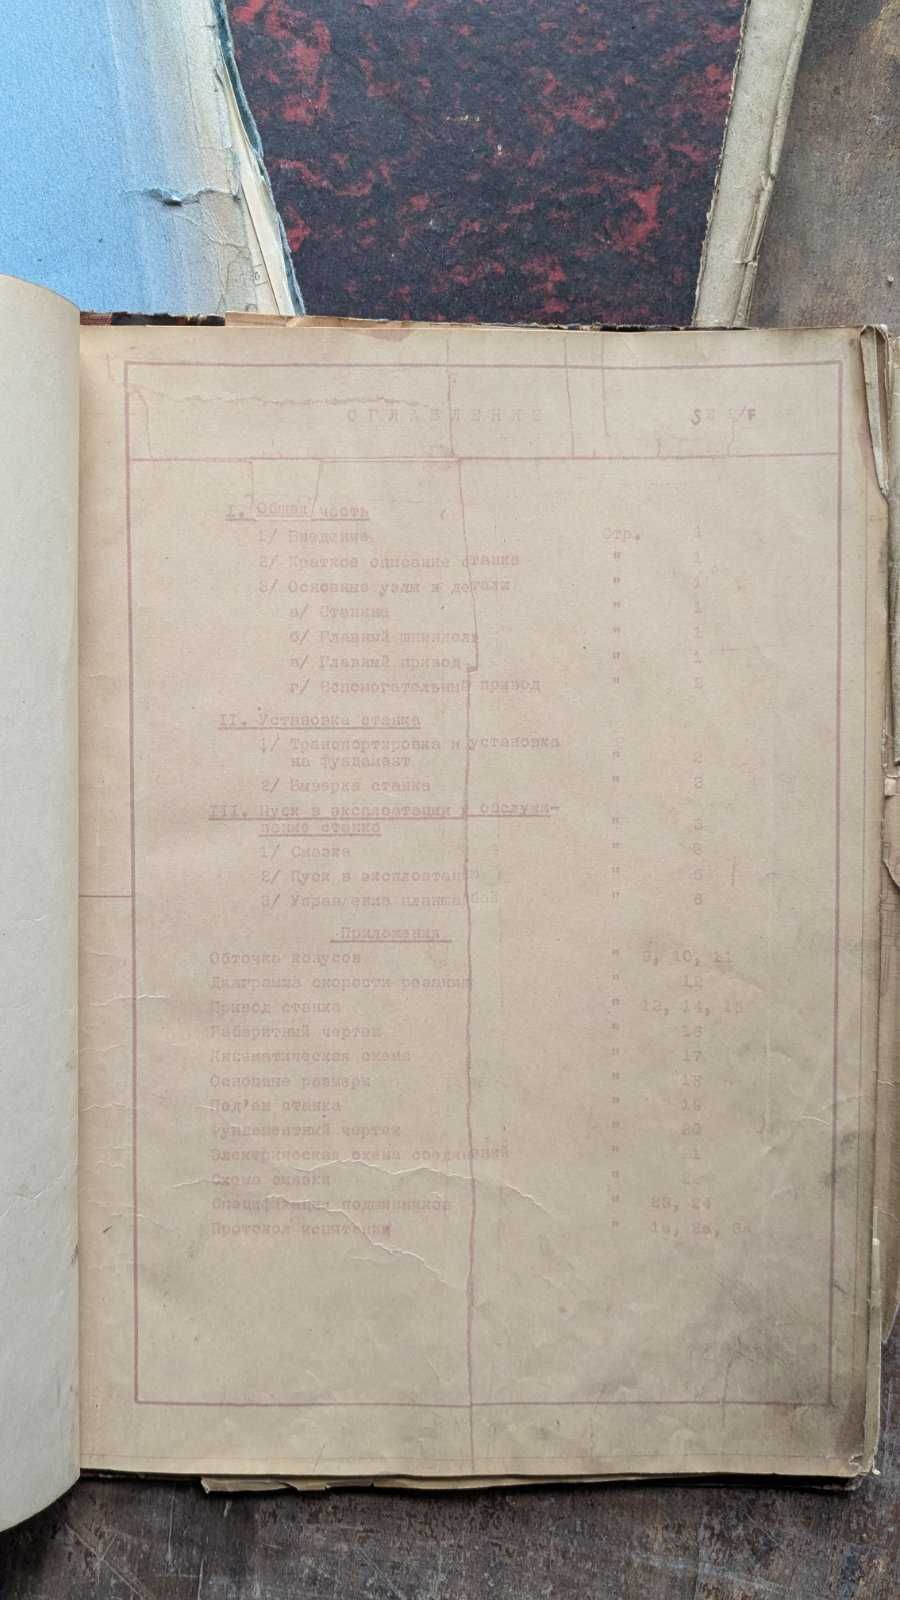 ОГЛАВЛЕНИЕ
I. Общая часть
1/ Введение Стр. 1
2/ Краткое описание станка " 1
3/ Основные узлы и детали " 1
а/ Станина " 1
б/ Главный шпиндель " 1
в/ Главный привод " 1
г/ Вспомогательный привод " 2
II. Установка станка
1/ Транспортировка и установка
на фундамент " 2
2/ Выверка станка " 3
III. Пуск в эксплоатации и обслужи-
вание станка " 3
1/ Смазка " 3
2/ Пуск в эксплоатацию " 5
3/ Управление планшайбой " 6
Приложения
Обточка конусов " 9, 10, 11
Диаграмма скорости резания " 12
Привод станка " 13, 14, 15
Габаритный чертеж " 16
Кинематическая схема " 17
Основные размеры " 18
Под'ем станка " 19
Фундаментный чертеж " 20
Электрическая схема соединений " 21
Схема смазки " 22
Спецификация подшипников " 23, 24
Протокол испытания " 1а, 2а, 3а